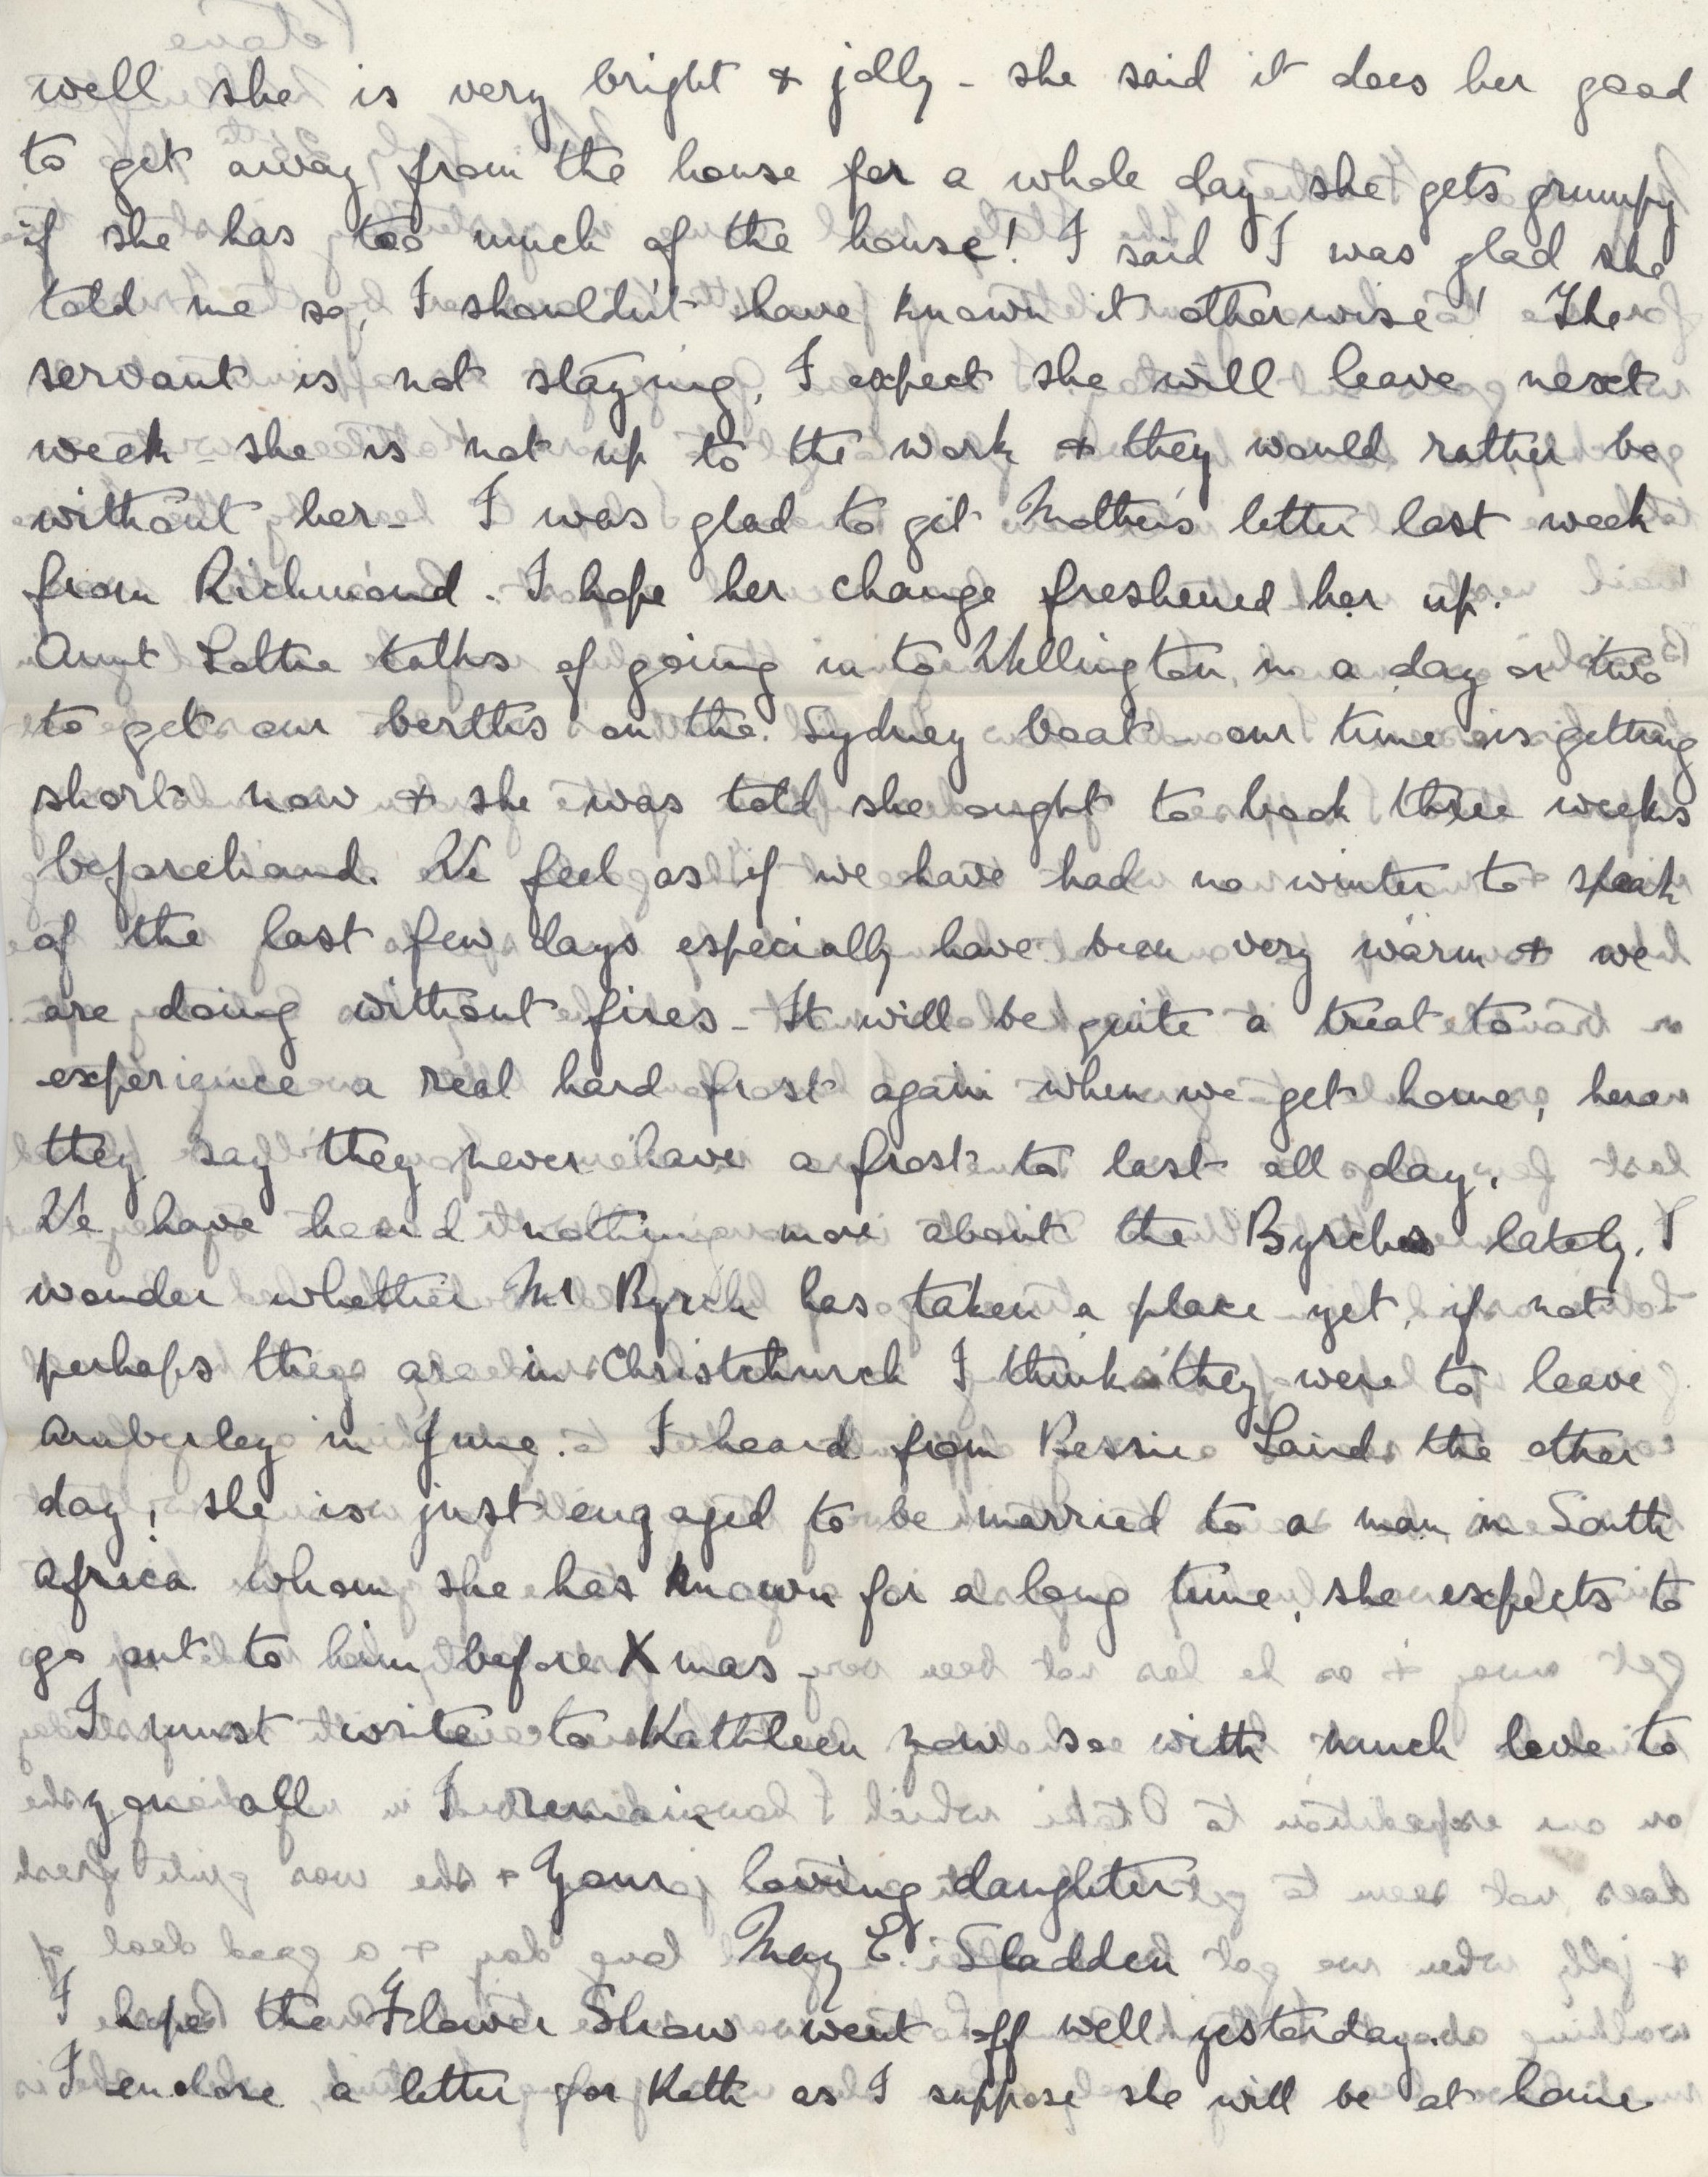 well she is very bright & jolly - she said it does her good
to get away from the house for a whole day she gets grumpy
if she has too much of the house! I said I was glad she
told me so, I shouldn't have known it otherwise! The
servant is not staying, I expect she will leave next
week - she is not up to the work & they would rather be
without her - I was glad to get Mother's letter last week
from Richmond. I hope her change freshened her up.
Aunt Lottie talks of going in to Wellington in a day or two
to get our berths on the Sydney boat - our time is getting
short now & she was told she ought to book three weeks
beforehand. We feel as if we have had no winter to speak
of the last few days especially have been very warm & we
are doing without fires - It will be quite a treat to
experience a real hard frost again when we get home, here
they say they never have a frost to last all day.
We have heard nothing more about the Byrches lately. I
wonder whether Mr Byrch has taken a place yet, if not
perhaps they are in Christchurch I think they were to leave
Amberley in June. - I heard from Bessie Laird the other
day, she is just engaged to be married to a man in South
Africa whom she has known for a long time, she expects to
go out to him before Xmas -
I must write to Kathleen now so with much love to
you all I remain
Your loving daughter
May E. Sladden
I hope the Flower Show went off well yesterday.
I enclose a letter for Kath as I suppose she will be at home